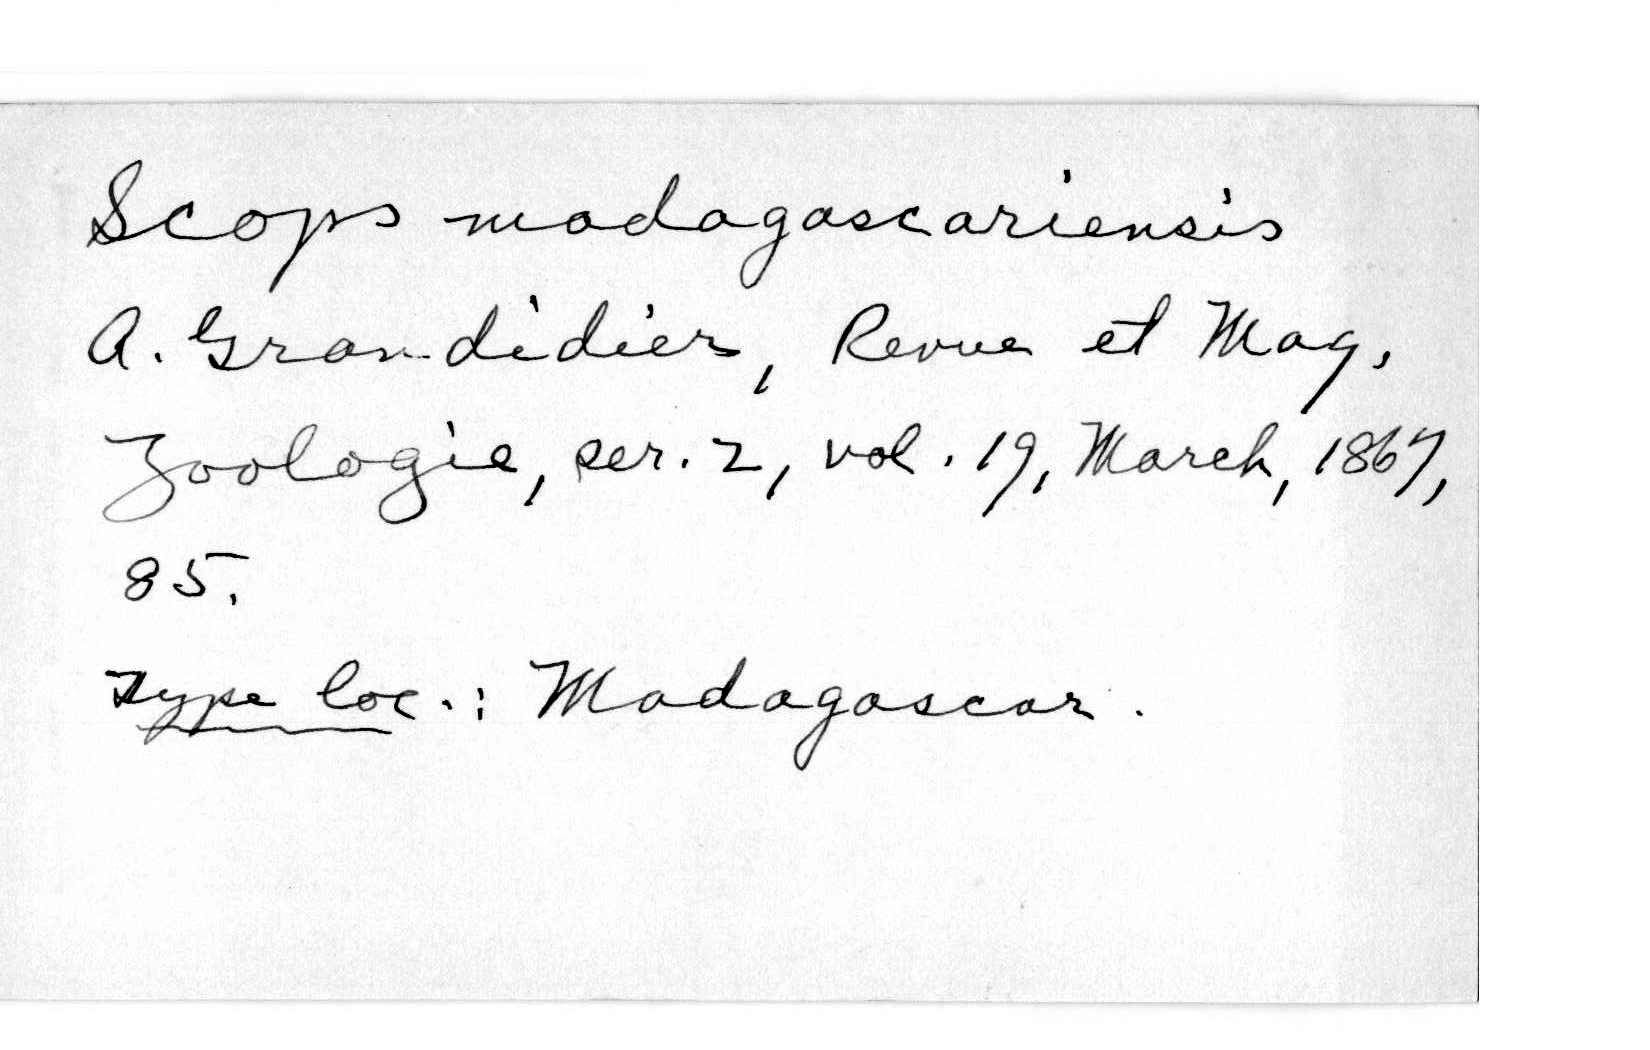 Scops madagascariensis
A. Grandidier, Revue et Mag.
Zoologie, ser. 2, vol. 19, March, 1867,
85.
Type loc.: Madagascar.